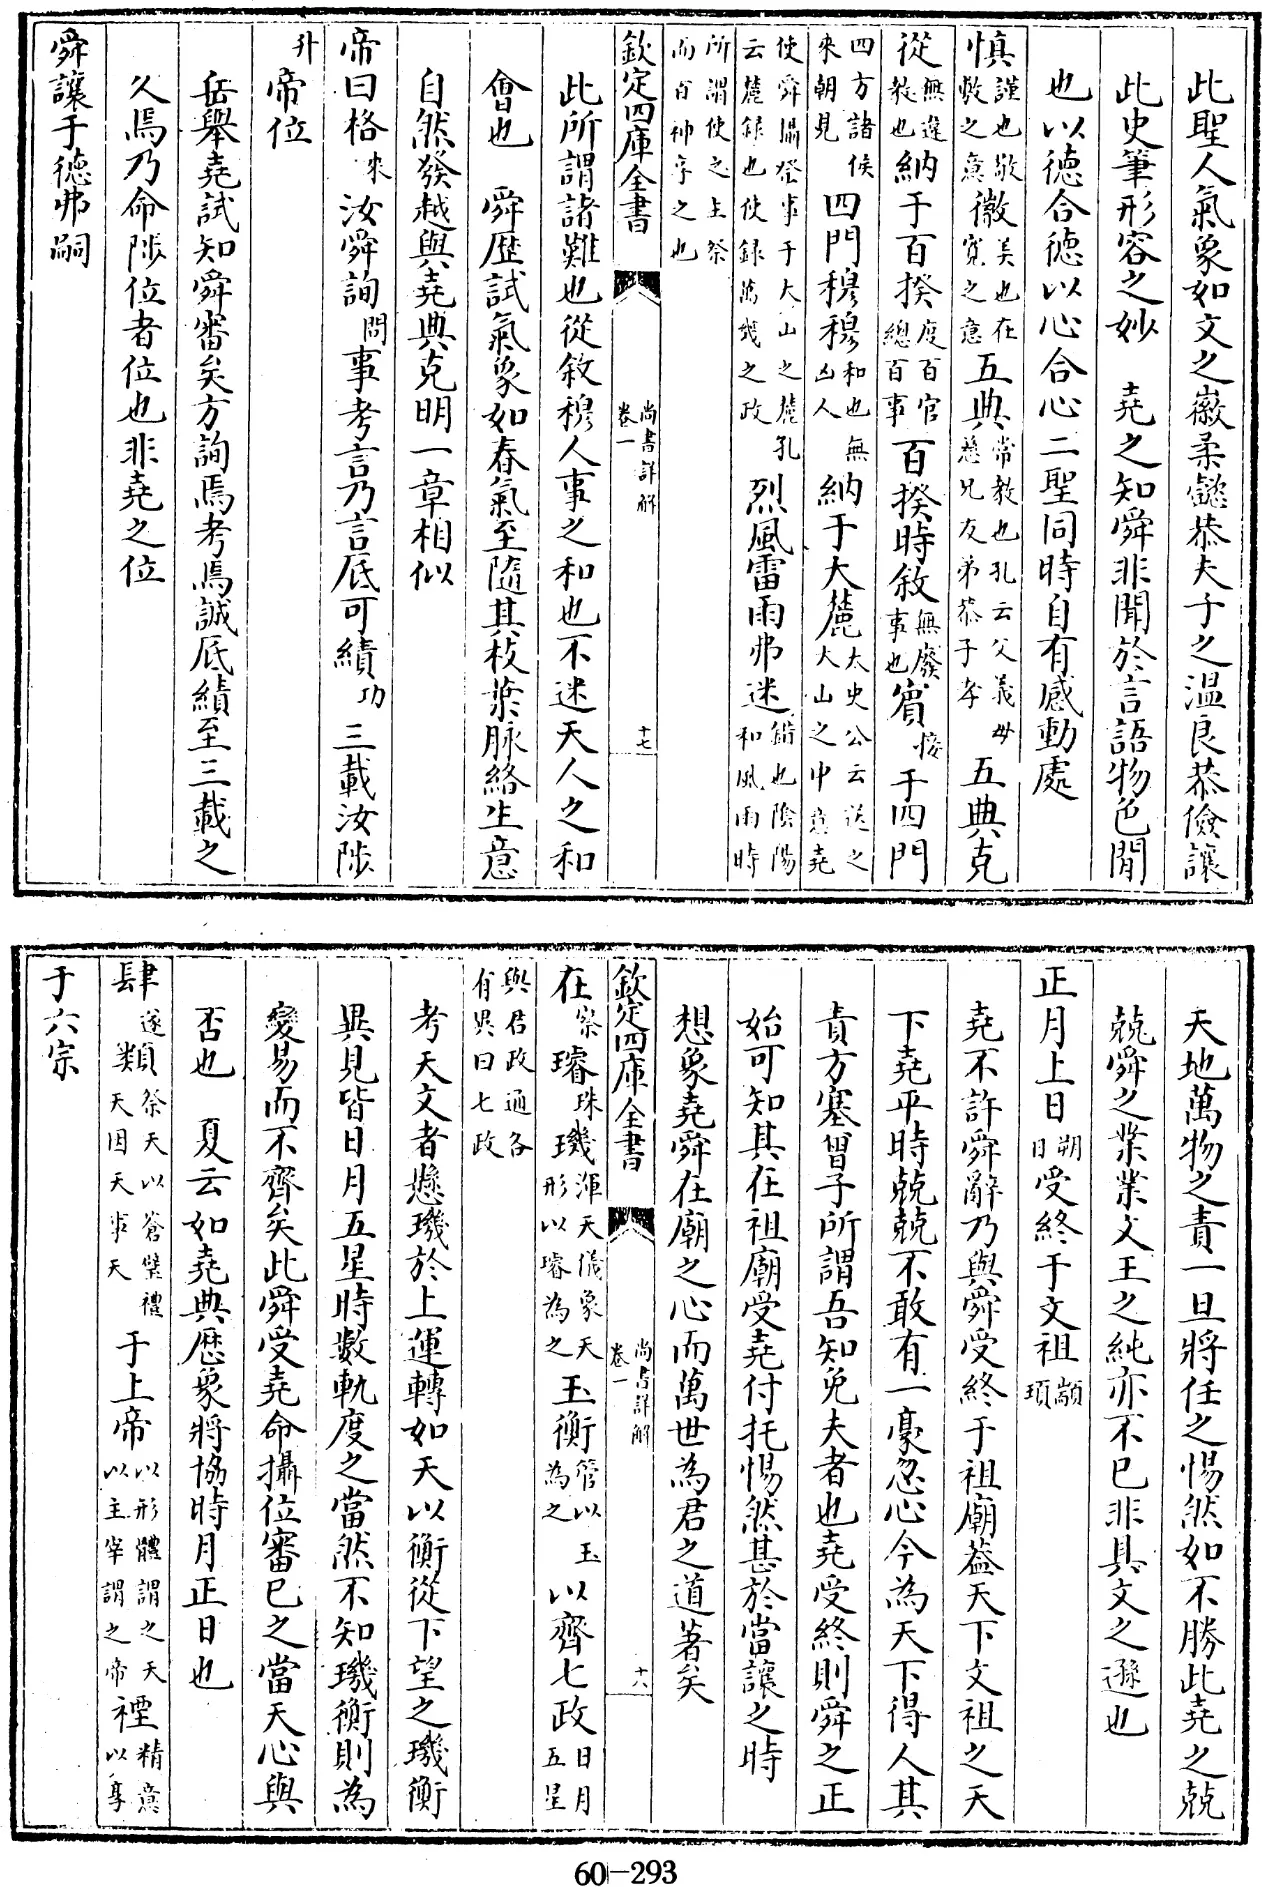 此聖人氣象如文之徽柔懿恭夫子之溫良恭儉讓
此史筆形容之妙　堯之知舜非聞於言語物色間
也以德合德以心合心二聖同時自有感動處
慎謹也敬敷之意徽美也在寬之意五典常教也孔云父義母慈兄友弟恭子孝五典克
從無違教也納于百揆度百官總百事百揆時敘無廢事也賓接于四門
四方諸侯來朝見四門穆穆和也無凶人納于大麓太史公云送之大山之中意堯
使舜攝登事于大山之麓孔云麓錄也使錄萬幾之政烈風雷雨弗迷錯也陰陽和風雨時
所謂使之主祭而百神享之也
欽定四庫全書　尚書詳解卷一　十七
此所謂諸難也從敘穆人事之和也不迷天人之和
會也　舜歷試氣象如春氣至隨其枝葉脉絡生意
自然發越與堯典克明一章相似
帝曰格來汝舜詢問事考言乃言厎可績功三載汝陟
升帝位
岳舉堯試知舜審矣方詢焉考焉誠厎績至三載之
久焉乃命陟位者位也非堯之位
舜讓于德弗嗣
天地萬物之責一旦將任之惕然如不勝此堯之兢
兢舜之業業文王之純亦不已非具文之遜也
正月上日朔日受終于文祖顓頊
堯不許舜辭乃與舜受終于祖廟葢天下文祖之天
下堯平時兢兢不敢有一豪忽心今為天下得人其
責方塞曾子所謂吾知免夫者也堯受終則舜之正
始可知其在祖廟受堯付托惕然甚於當讓之時
想象堯舜在廟之心而萬世為君之道著矣
欽定四庫全書　尚書詳解卷一　十八
在察璿珠璣渾天儀象天形以璿為之玉衡管以玉為之以齊七政日月五星
與君政通各有異曰七政
考天文者懸璣於上運轉如天以衡從下望之璣衡
異見皆日月五星時數軌度之當然不知璣衡則為
變易而不齊矣此舜受堯命攝位審已之當天心與
否也　夏云如堯典歷象將協時月正日也
肆遂類祭天以蒼璧禮天因天事天于上帝以形體謂之天以主宰謂之帝禋精意以享
于六宗
60-293